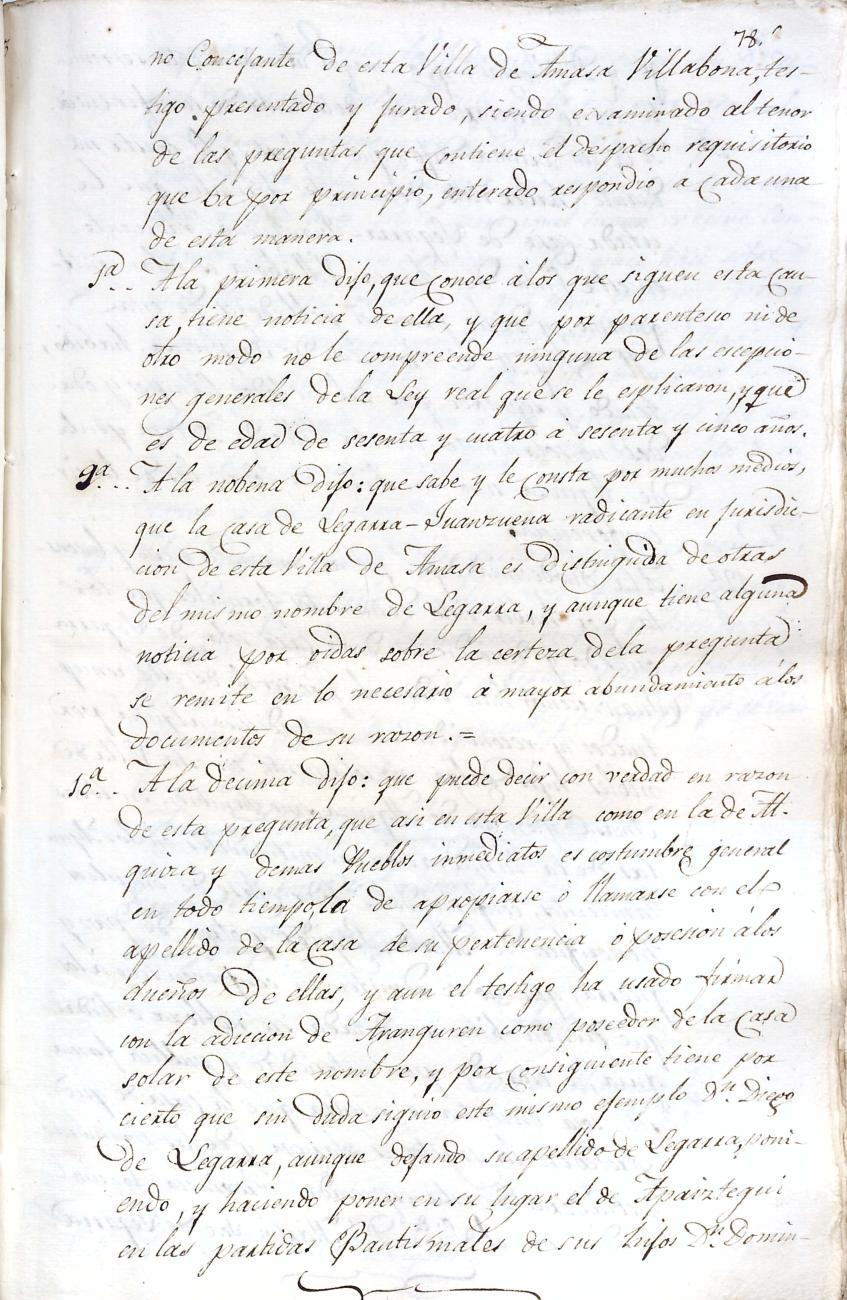 78.
no Concejante de esta Villa de Amasa Villabona, tes-
tigo presentado y jurado, siendo examinado al tenor
de las preguntas que contiene el despacho requisitorio
que ba por principio, enterado respondio á cada una
de esta manera.
1ª.. A la primera dijo, que conoce á los que siguen esta cau-
sa, tiene noticia de ella, y que por parentesco ni de
otro modo no le compreende ninguna de las escepcio-
nes generales de la Ley real que se le esplicaron, y que
es de edad de sesenta y cuatro á sesenta y cinco años.
9ª... A la nobena dijo: que sabe y le consta por muchos medios,
que la casa de Legarra-Juanzuena radicante en jurisdic-
cion de esta Villa de Amasa es distinguida de otras
del mismo nombre de Legarra, y aunque tiene alguna
noticia por oidas sobre la certeza dela pregunta
se remite en lo necesario á mayor abundamiento á los
documentos de su razon. =
10ª.. A la decima dijo: que puede decir con verdad en razon
de esta pregunta, que asi en esta Villa como en la de Al-
quiza y demas Pueblos inmediatos es costumbre general
en todo tiempo, la de apropiarse ó llamarse con el
apellido de la casa de su pertenencia ó posesion á los
dueños de ellas, y aun el testigo ha usado firmar
con la adiccion de Aranguren como poseedor de la casa
solar de este nombre, y por consiguiente tiene por
cierto que sin duda siguio este mismo ejemplo Dn. Diego
de Legarra, aunque dejando su apellido de Legarra, poni-
endo, y haciendo poner en su lugar el de Apaiztegui
en las partidas Bautismales de sus hijos Dn. Domin-